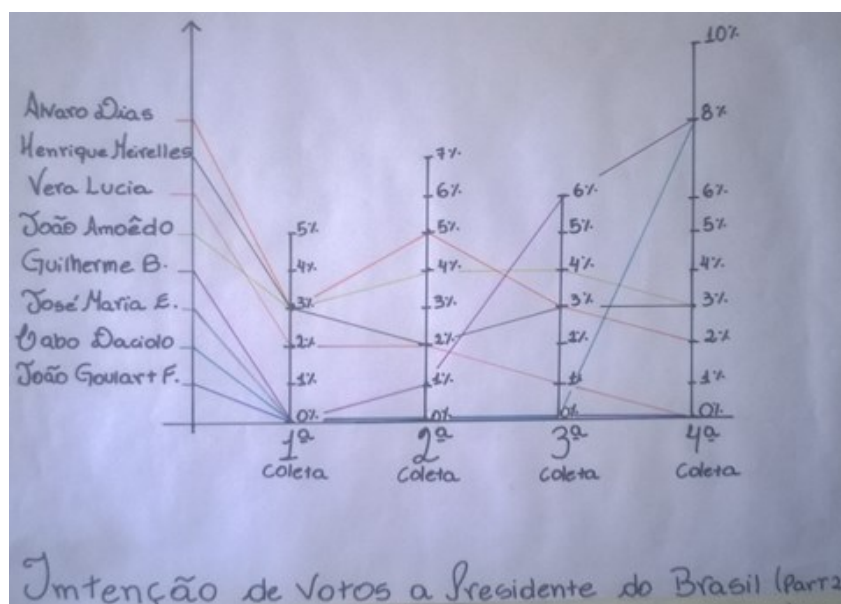 Alvaro Dias
Henrique Meirelles
Vera Lucia
João Amoêdo
Guilherme B.
José Maria E.
Cabo Daciolo
João Goulart F.
5%
4%
3%
2%
1%
0%
1ª
Coleta
7%
6%
5%
4%
3%
2%
1%
0%
2ª
Coleta
6%
5%
4%
3%
1%
1
0%
3ª
Coleta
10%
8%
6%
5%
4%
3%
2%
1%
0%
4ª
Coleta
Imtenção de Votos a Presidente do Brasil (Part2